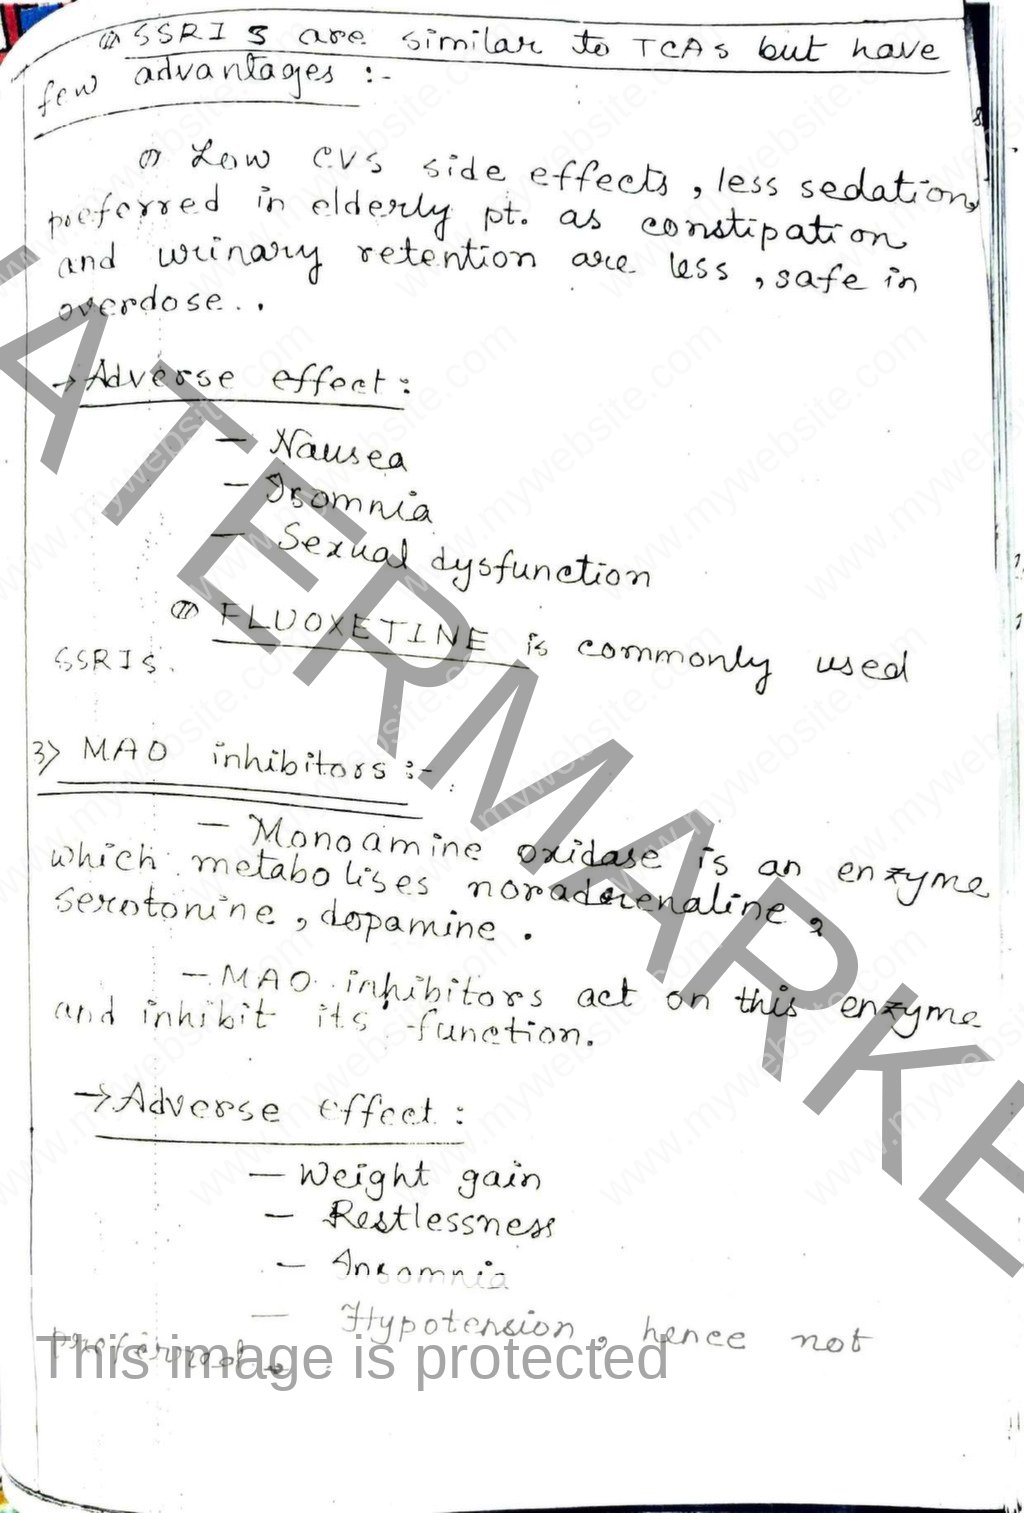 (ii) SSRIs are similar to TCAs but have
few advantages :-
(i) Low CVS side effects, less sedation,
preferred in elderly pt. as constipation
and urinary retention are less, safe in
overdose..
→ Adverse effect :
— Nausea
— Isomnia
— Sexual dysfunction
(iii) FLUOXETINE is commonly used
SSRIs.
3) MAO inhibitors :-
— Monoamine oxidase is an enzyme
which metabolises noradrenaline,
serotonine, dopamine.
— MAO inhibitors act on this enzyme
and inhibit its function.
→ Adverse effect :
— Weight gain
— Restlessness
— Insomnia
— Hypotension, hence not
preferred.
This image is protected
WATERMARKE
www.mywebsite.com